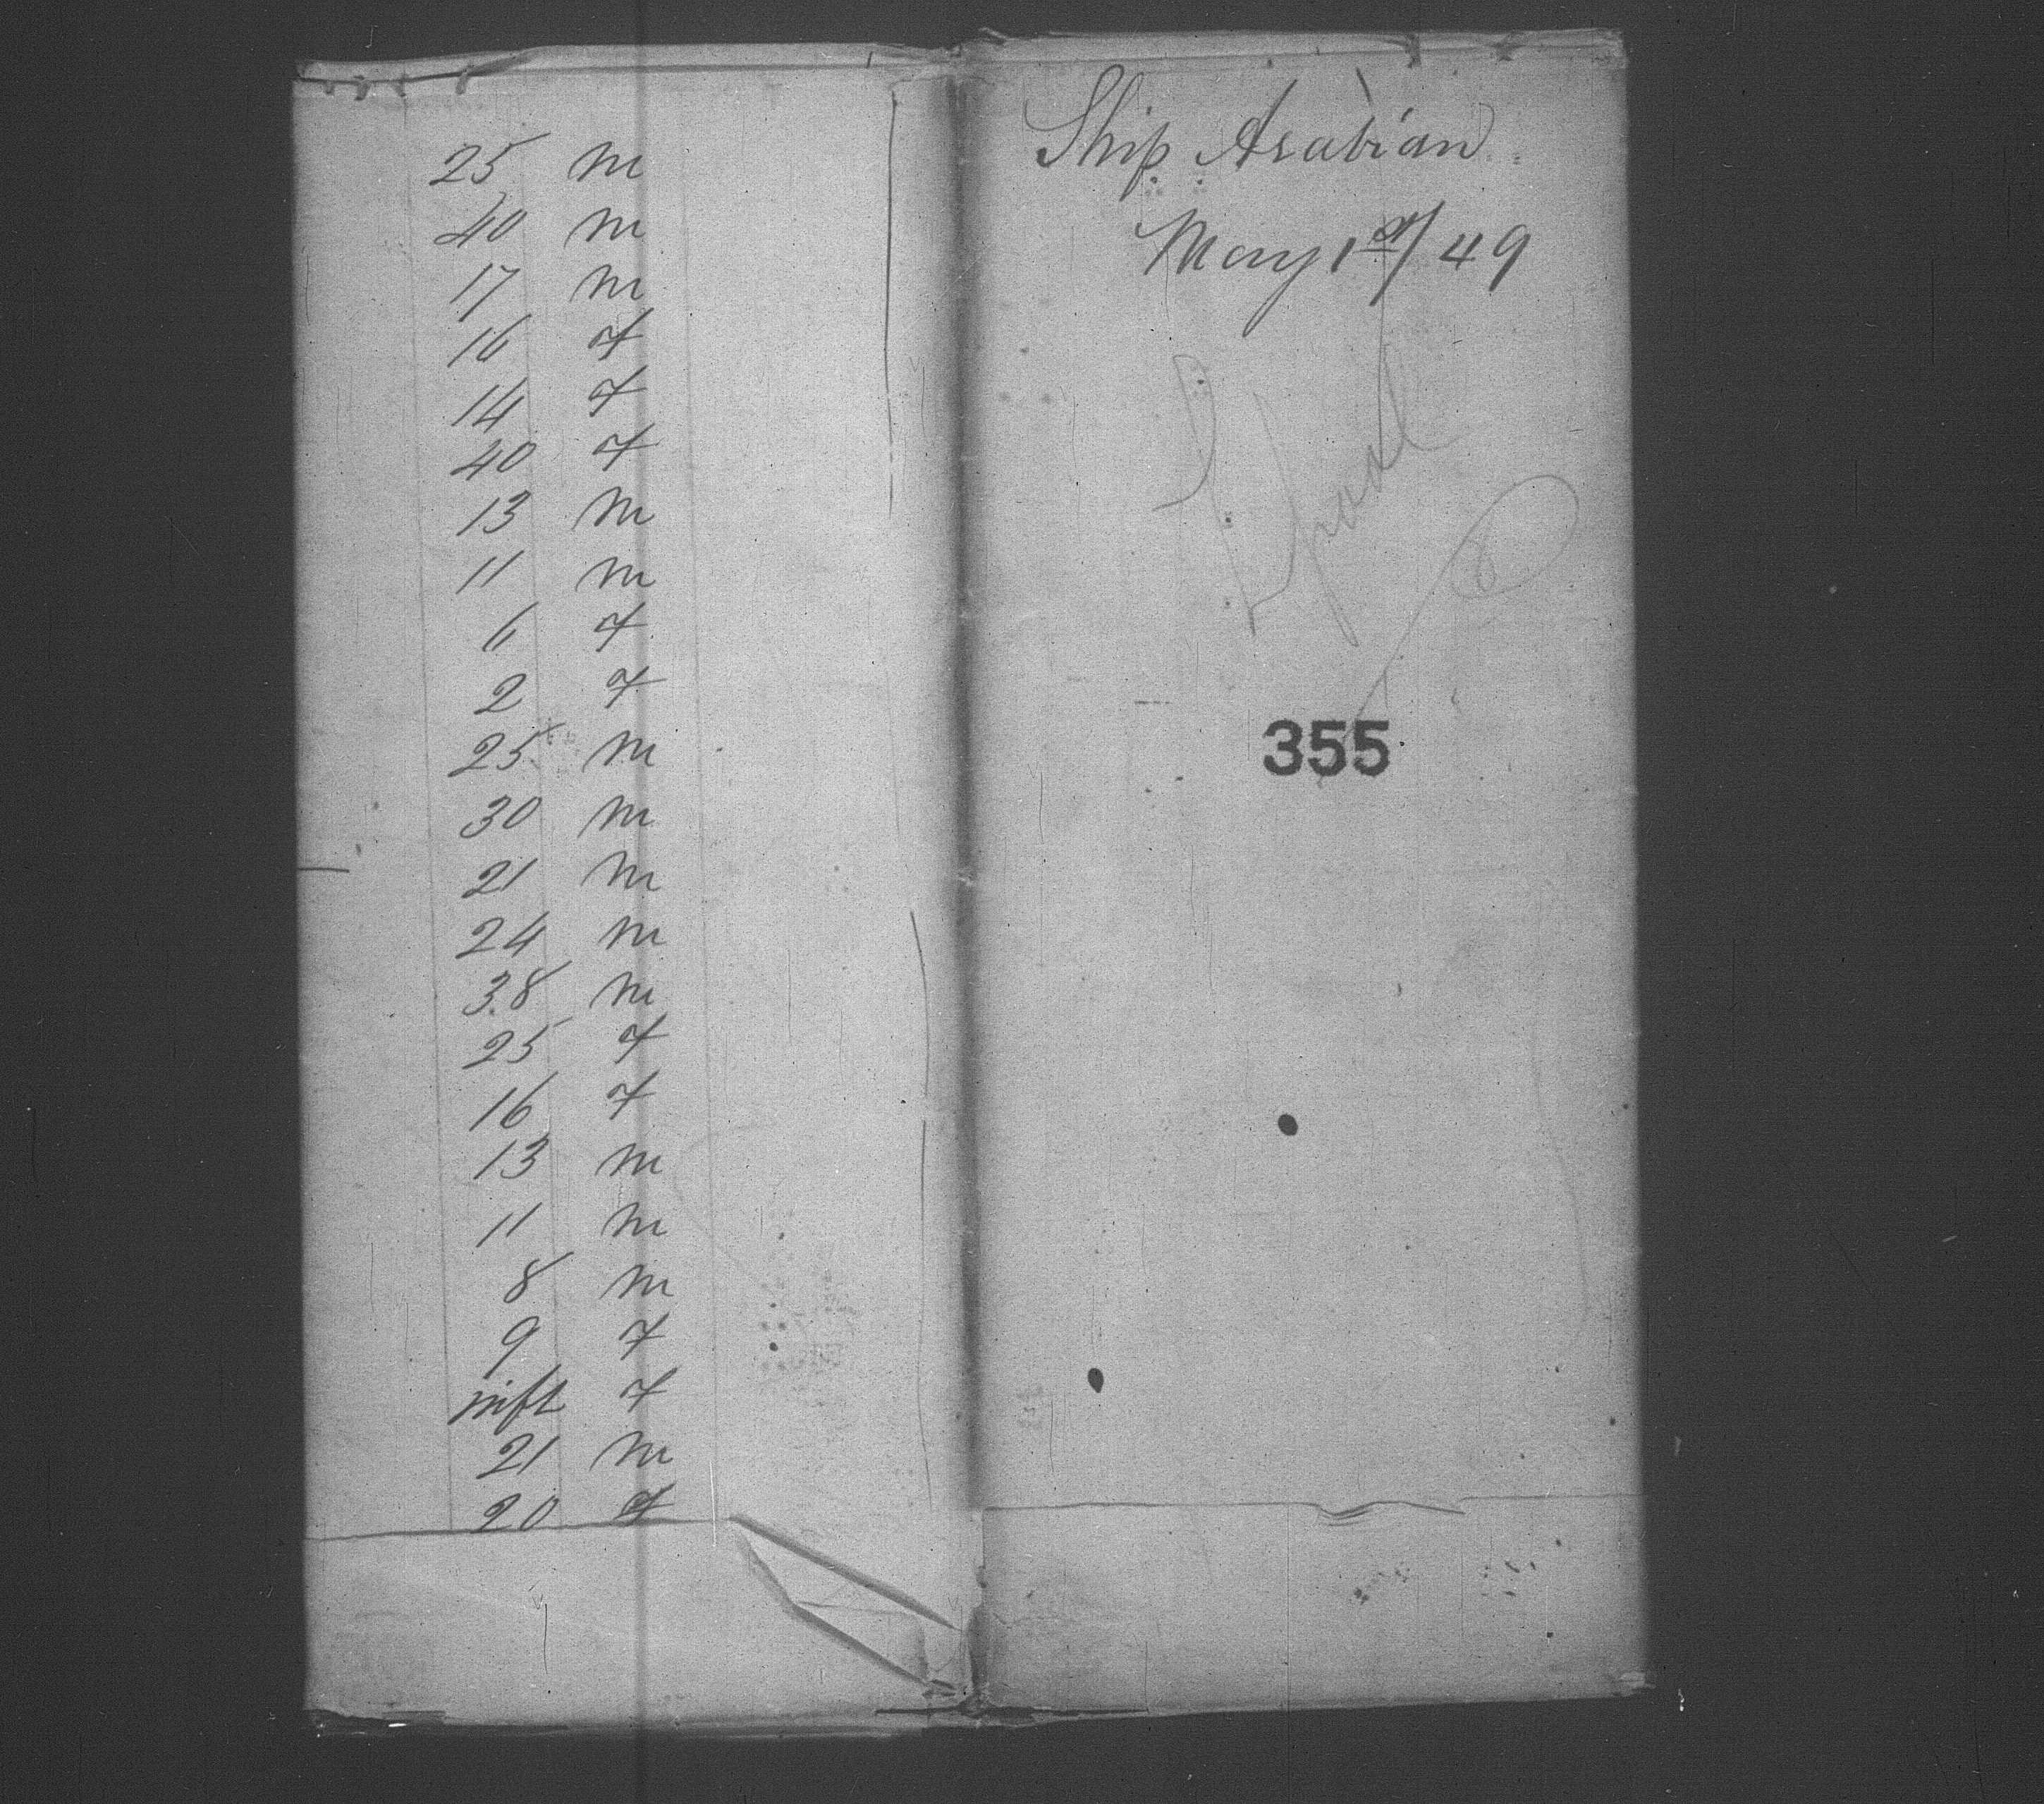 25 m
40 m
17 m
16 f
14 f
40 f
13 m
11 m
6 f
2 f
25 m
30 m
21 m
24 m
38 m
25 f
16 f
13 m
11 m
8 m
9 f
inft f
21 m
20 f
Ship Arabian
May 1st/49
355